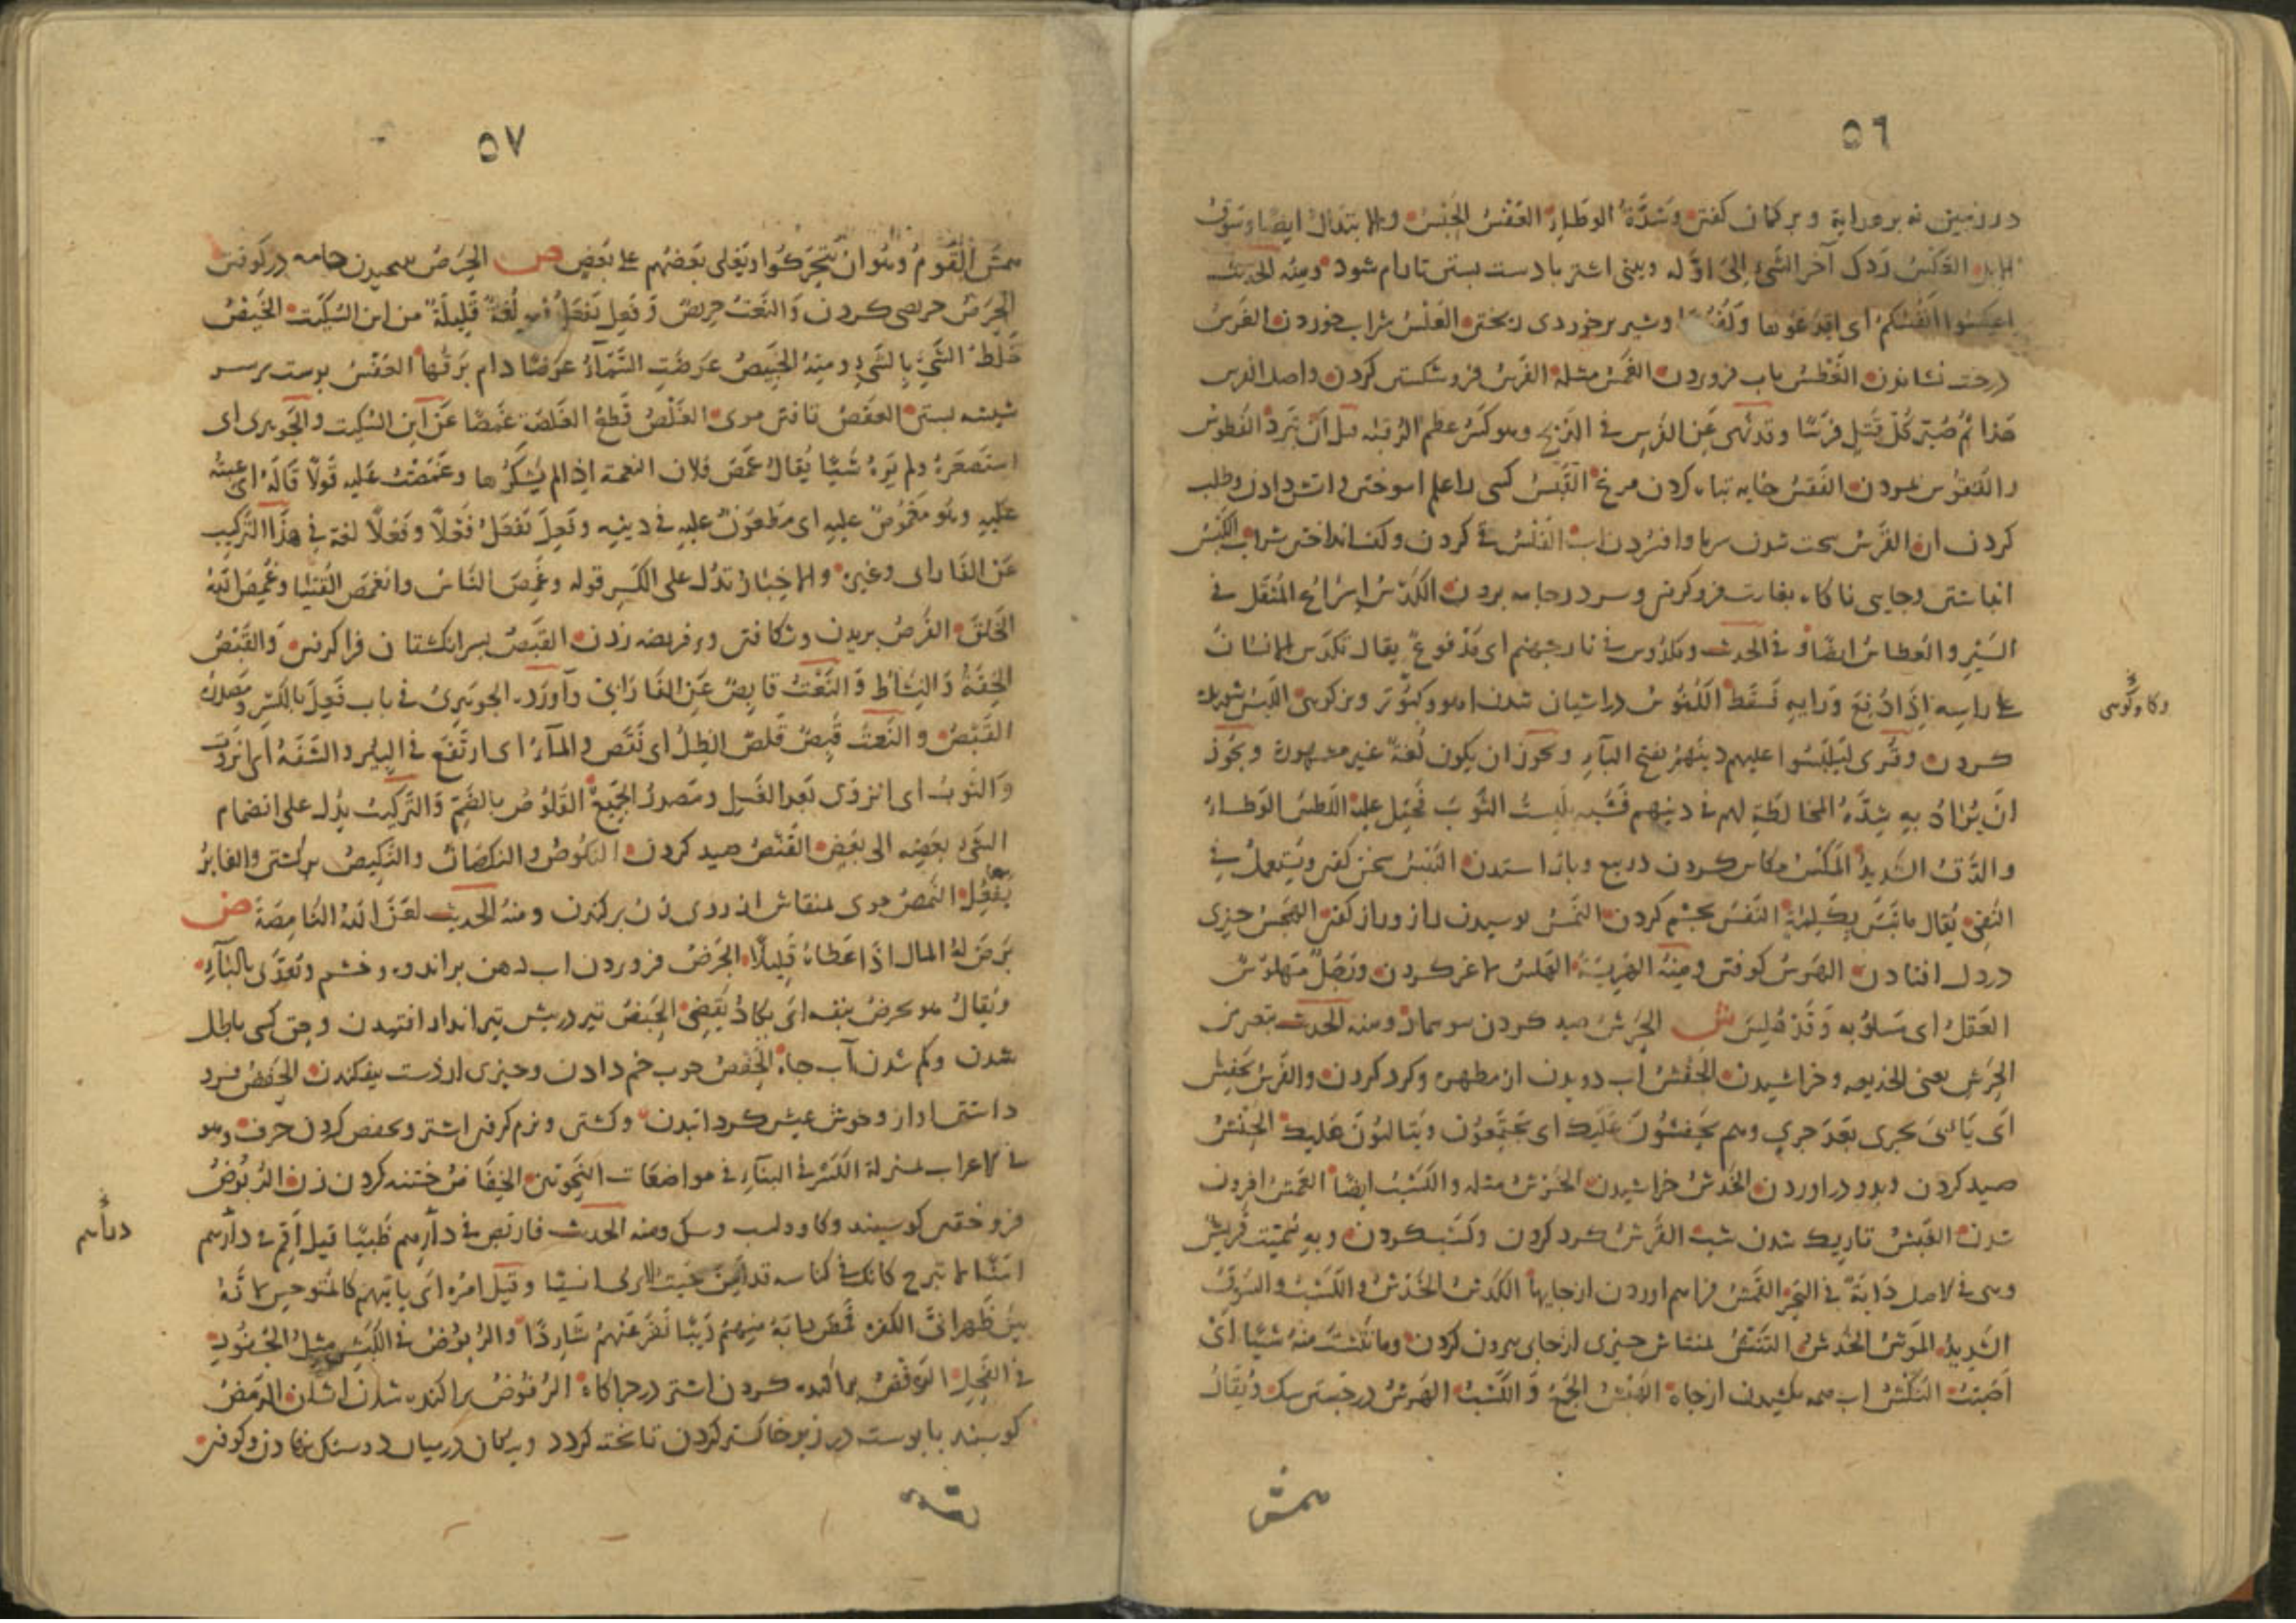 ٥٦
در زمین نه بر عرابة و بر کمان کفتن وشدّة الوطاء العَفْسُ الحَبْسُ والابتذال ایضًا وسَوْقُ
الابل العَکْسُ رَدُّک آخر الشّئِ اِلیٰ اوّله وبینی اشتر با دست بستن تا رام شود ومِنْهُ الحدیث
اعکسوا انفسکم ای اقدعوها و وشیر بر خوردی ریختن الغَلْسُ شراب خوردن الغَرْسُ
درخت نشاندن الغَطْسُ باب فروبردن الغَمْسُ مثله الفَرْسُ فرو شکستن کردن واصل الفرس
هَذا ثُمَّ صُیِّرَ کُلُّ قَتْلٍ فَرْسًا وقد نُهِیَ عَنِ الفَرْسِ فی الذبح وهو کَسْرُ عظم الرقبه قبل اَنْ تَبْرُدَ الفُطُوسُ
والفُقُوس مردن الفَقْسُ خایه تباه کردن مرغ القَبْسُ کسی را علم اموختن و اتش دادن وطلب
کردن ان القَرْسُ سخت شدن سرما وافسردن اب القَلْسُ قی کردن وکف انداختن شراب الکَبْسُ
انباشتن وجایی ناکاه بغارت فرو کرفتن وسر در جامه بردن الکَدْسُ اِسْرَاعُ المُثْقَلِ فی
السَّیْرِ والعُطاسُ ایضًا و فی الحدیث ومَکْدُوس فی نار جهنم ای مَدْفوعٌ یقال تَکَدَّسَ الانسَانُ
عَلی راسِهِ اِذَا دُفِعَ وَرَایِهِ فَسَقَطَ الکُنُوسُ در اشیان شدن اهو وکبوتر وبز کوهی اللَّبْسُ شوریده
کردن وقُرِیَ لِیَلْبَسُوا علیهم دینَهُمْ بفتح البآءِ ویجوز ان یکون لُغةً غیر مشهورة ویجُوز
اَنْ یُرادَ بِهِ شِدَّةُ المخالطَةِ لهم فی دینهم فَشَبَّه بِلُبْسِ الثَّوبِ فَحُمِلَ علیه اللَّطْسُ الوَطاءُ
والدَّقُّ الشدیدُ المَکْسُ مکاس کردن در بیع وباز استدن النَّبْسُ سخن کفتن ویُسْتعملُ فی
النَّفی یُقال ما نَبَسَ بِکَلِمَةٍ النَّفْسُ بچشم کردن النَّمْسُ پوسیدن راز وراز کفتن الهَجْسُ چیزی
در دل افتادن الهَرْسُ کوفتن ومِنْهُ الهَرِیْسَةُ الهَلْسُ لاغر کردن ورَجُلٌ مَهْلوسُ
العَقْلِ ای مَسلوبُه وَقَدْ هُلِسَ ش الحَرْشُ صید کردن سوسمار ومنه الحدیث بتعریض
الحَرْشِ یعنی الخدیعه وخراشیدن الحَفْشُ اب دویدن از مطهره وکرد کردن والفَرَسُ یَحْفِشُ
اَی یَاتی بجری بَعْدَ جری وهم یَحْفِشُونَ عَلَیْکَ ای یجتَمِعُونَ ویَتَالبُونَ عَلیک الحَنْشُ
صید کردن وبدر اوردن الخَدْشُ خراشیدن الخَرْشُ مثله والکَسْبُ ایضًا العَمْشُ افزون
شدن الغَبْشُ تاریک شدن شب القَرْشُ کرد کردن وکَسْب کردن وبِهِ سُمّیَتْ قُریشٌ
وهی فی الاصل دَابّةٌ فی البَحْرِ القَمْشُ فراهم اوردن از جایها الکَدْشُ الخَدْشُ والکَسْبُ والسَّوقُ
الشّدیدُ المَرْشُ الخَدْشُ النَّتْشُ بمنقاش چیزی از جای بیرون کردن وما نَتَشْتُ مِنْهُ شَیًا اَیْ
اَصَبْتُ النَّکْشُ اب همه بکشیدن از چاه الهَبْشُ الجَمْعُ وَالکَسْبُ الهَرْشُ در جستن سک ویُقالُ
وکاو کوهی
همش
٥٧
همش القَومُ وهُوَ اَنْ یَتَحَرّکُوا ویَغلی بَعْضُهُم علی بَعْضٍ ص الحَرْصُ جامه در کوفتن
الحِرْصُ حریصی کردن وَالنَّعْتُ حریصٌ وَفَعِل یَفْعَلُ فیه لُغَةٌ قَلِیلَةٌ من ابن السکّیت الخَبْصُ
خَلْطُ الشَّیِٔ بِالشَّیِٔ ومِنهُ الخَبِیصُ عَرَصَتِ السَّمَآءُ عَرْصًا دام بَرقُها العَفْصُ پوست بر سر
شیشه بستن العَقْصُ تافتن موی الغَلْصُ قَطْعُ الغَلصَمَة غَمَصًا عَنْ اَبن السکیت والجَوهری ای
استصغرهُ ولم یَرَهُ شَیْاً یُقالُ غَمَصَ فُلان النعمة اِذا لم یَشْکُرها وغَمَصْتُ عَلیهِ قَولًا قَالَهُ ای عبتُه
عَلَیهِ وهُو مَغْمُوصٌ علیهِ ای مَطْعونٌ علیهِ فی دینِه وفَعِلَ یَفْعَلُ فَعْلًا وفَعَلًا لغة فی هذَا التَّرکیب
عَن الفَارابی وغیره والاخبَارُ تدُلُّ علی الکسرِ قوله وغَمِصَ النَّاسَ وانغمَصَ الفُتیا وغَمِصَ اللهُ
الخَلْقَ الفَرْصُ بریدن وشکافتن وبر فریصه زدن القَبْصُ بسر انکشتان فرا کرفتن وَالقَبْضُ
الخِفَّةُ وَالنَّشَاط وَالنَّعْتُ قابِصٌ عَنِ الفَارَابی وآورَد الجوهَریُ فی باب فَعِلَ بالکَسْرِ ومَصدرُه
القَبْصُ والنَّعتُ قَبِصٌ قَلَصَ الظِلُّ ای نَقَص والمآءُ ای ارتَفَع فی البِئْرِ والشَّفَةُ ای انزَوَتْ
وَالثَّوبُ ای انزَوی بَعدَ الغَسْل ومَصدرُ الجَمیعُ القُلُوصُ بالضَّمِّ وَالتَّرکیبُ یدُل علی انضمام
الشّیْءِ بَعضِهِ الی بَعْضٍ القَنْصُ صید کردن النُکُوصُ والنَکَصَانُ والنَّکِیصُ برکشتن والغابرُ
یَفْعُلُ النَّمْصُ موی بمنقاش از روی زن برکندن ومنهُ الحَدیث لعَنَ اللهُ النَّامِصَةَ ض
بَرَضَ لهُ المال اذَا عَطَاهُ قَلِیلًا الجَرْضُ فروبردن اب دهن براندوه وخشم وتعدّی بالبآءِ
ویُقالُ هو یجرض بنفسه ای یکادُ یَقْضِی الحَبْضُ تیر در پیش تیر انداز افتیدن وحق کسی باطل
شدن وکم شدن آب چاه الحَفْضُ چوب خم دادن وچیزی از دست بیفکندن الخَفْضُ فرو
داشتن اواز وخوش عیش کردانیدن وکشتی ونرم کرفتن اشتر وبخفض کردن حرف وهو
فی الاعراب بمنزلة الکَسْر فی البنآءِ فی مواضعات النّحوییّن الخِفَاضُ ختنه کردن زن الرُّبُوضُ
فرو خفتن کوسبند وکاو واسب وسک ومنه الحدیث فاربض فی دارِهِم ظَبیًا قیل اَقِمْ فی دارِهم
امنًا لا تبرح کانک فی کناسه قد اَمِنَ حَیْثُ لا یرٰی انسیًا وقیل امَرَه اَی یاتِیَهُم کالمُتوحِّشِ لاَنَّهُ
بین ظَهرانَی الکفرة فمَتی رابَهُ مِنهُمْ رَیْبًا نَفَرَ عَنْهُمْ شَارِدًا والرُّبوضُ فی الکَبْشِ مِثلُ الجُفُورِ
فی الفَحلِ الرَّفْضُ پراکنده کردن اشتر در چراکاه الرُّفوضُ پراکنده شدن اشتران الرَّمْضُ
کوسبند با پوست در زیر خاکستر کردن تا پخته کردد وپیکان در میان دو سنک نهادن وکوفتن
دراهم